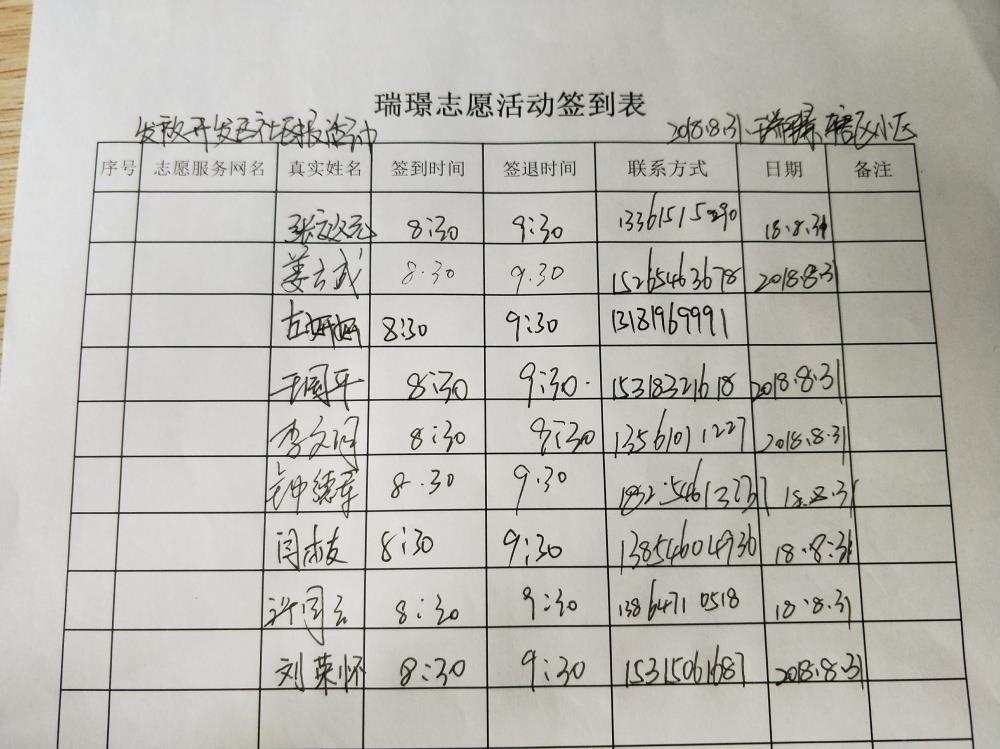 瑞璟志愿活动签到表
发放开发区社区报活动 2018.8.31 瑞璟辖区小区
序号 志愿服务网名 真实姓名 签到时间 签退时间 联系方式 日期 备注
8:30 9:30 13361515290 18.8.31
姜立武 8.30 9.30 15265463678 2018.8.31
8:30 9:30 13181969991
王国平 8:30 9:30. 15318321618 2018.8.31
李文阁 8:30 8:30 13561071227 2018.8.31
钟德军 8.30 9.30 18.8.31
闫本友 8:30 9:30 13854604930 18.8.31
许同云 8:30 9:30 13864710518 18.8.31
刘荣怀 8:30 9:30 15315061687 2018.8.31